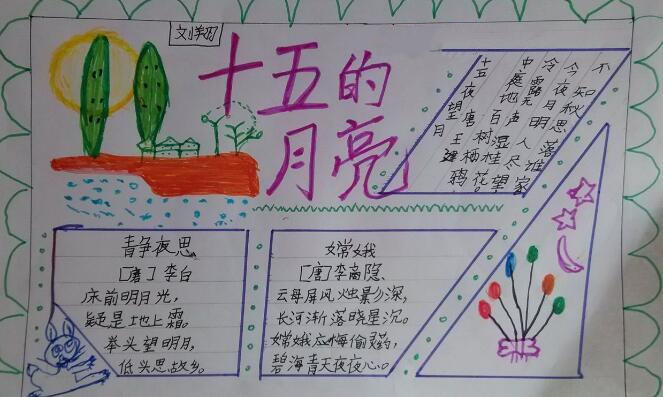 刘翔
十五的
月亮
十五夜望月
唐 王建
中庭地百树栖鸦。
冷露无声湿桂花。
今夜月明人尽望
不知秋思落谁家
静夜思
[唐]李白
床前明月光，
疑是地上霜。
举头望明月，
低头思故乡。
嫦娥
[唐]李商隐、
云母屏风烛影深，
长河渐落晓星沉。
嫦娥应悔偷灵药，
碧海青天夜夜心。